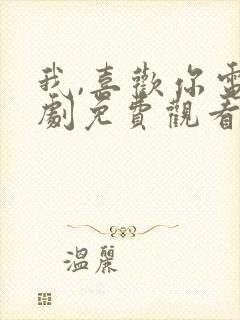 我,喜歡你電
劇免費觀看
溫麗